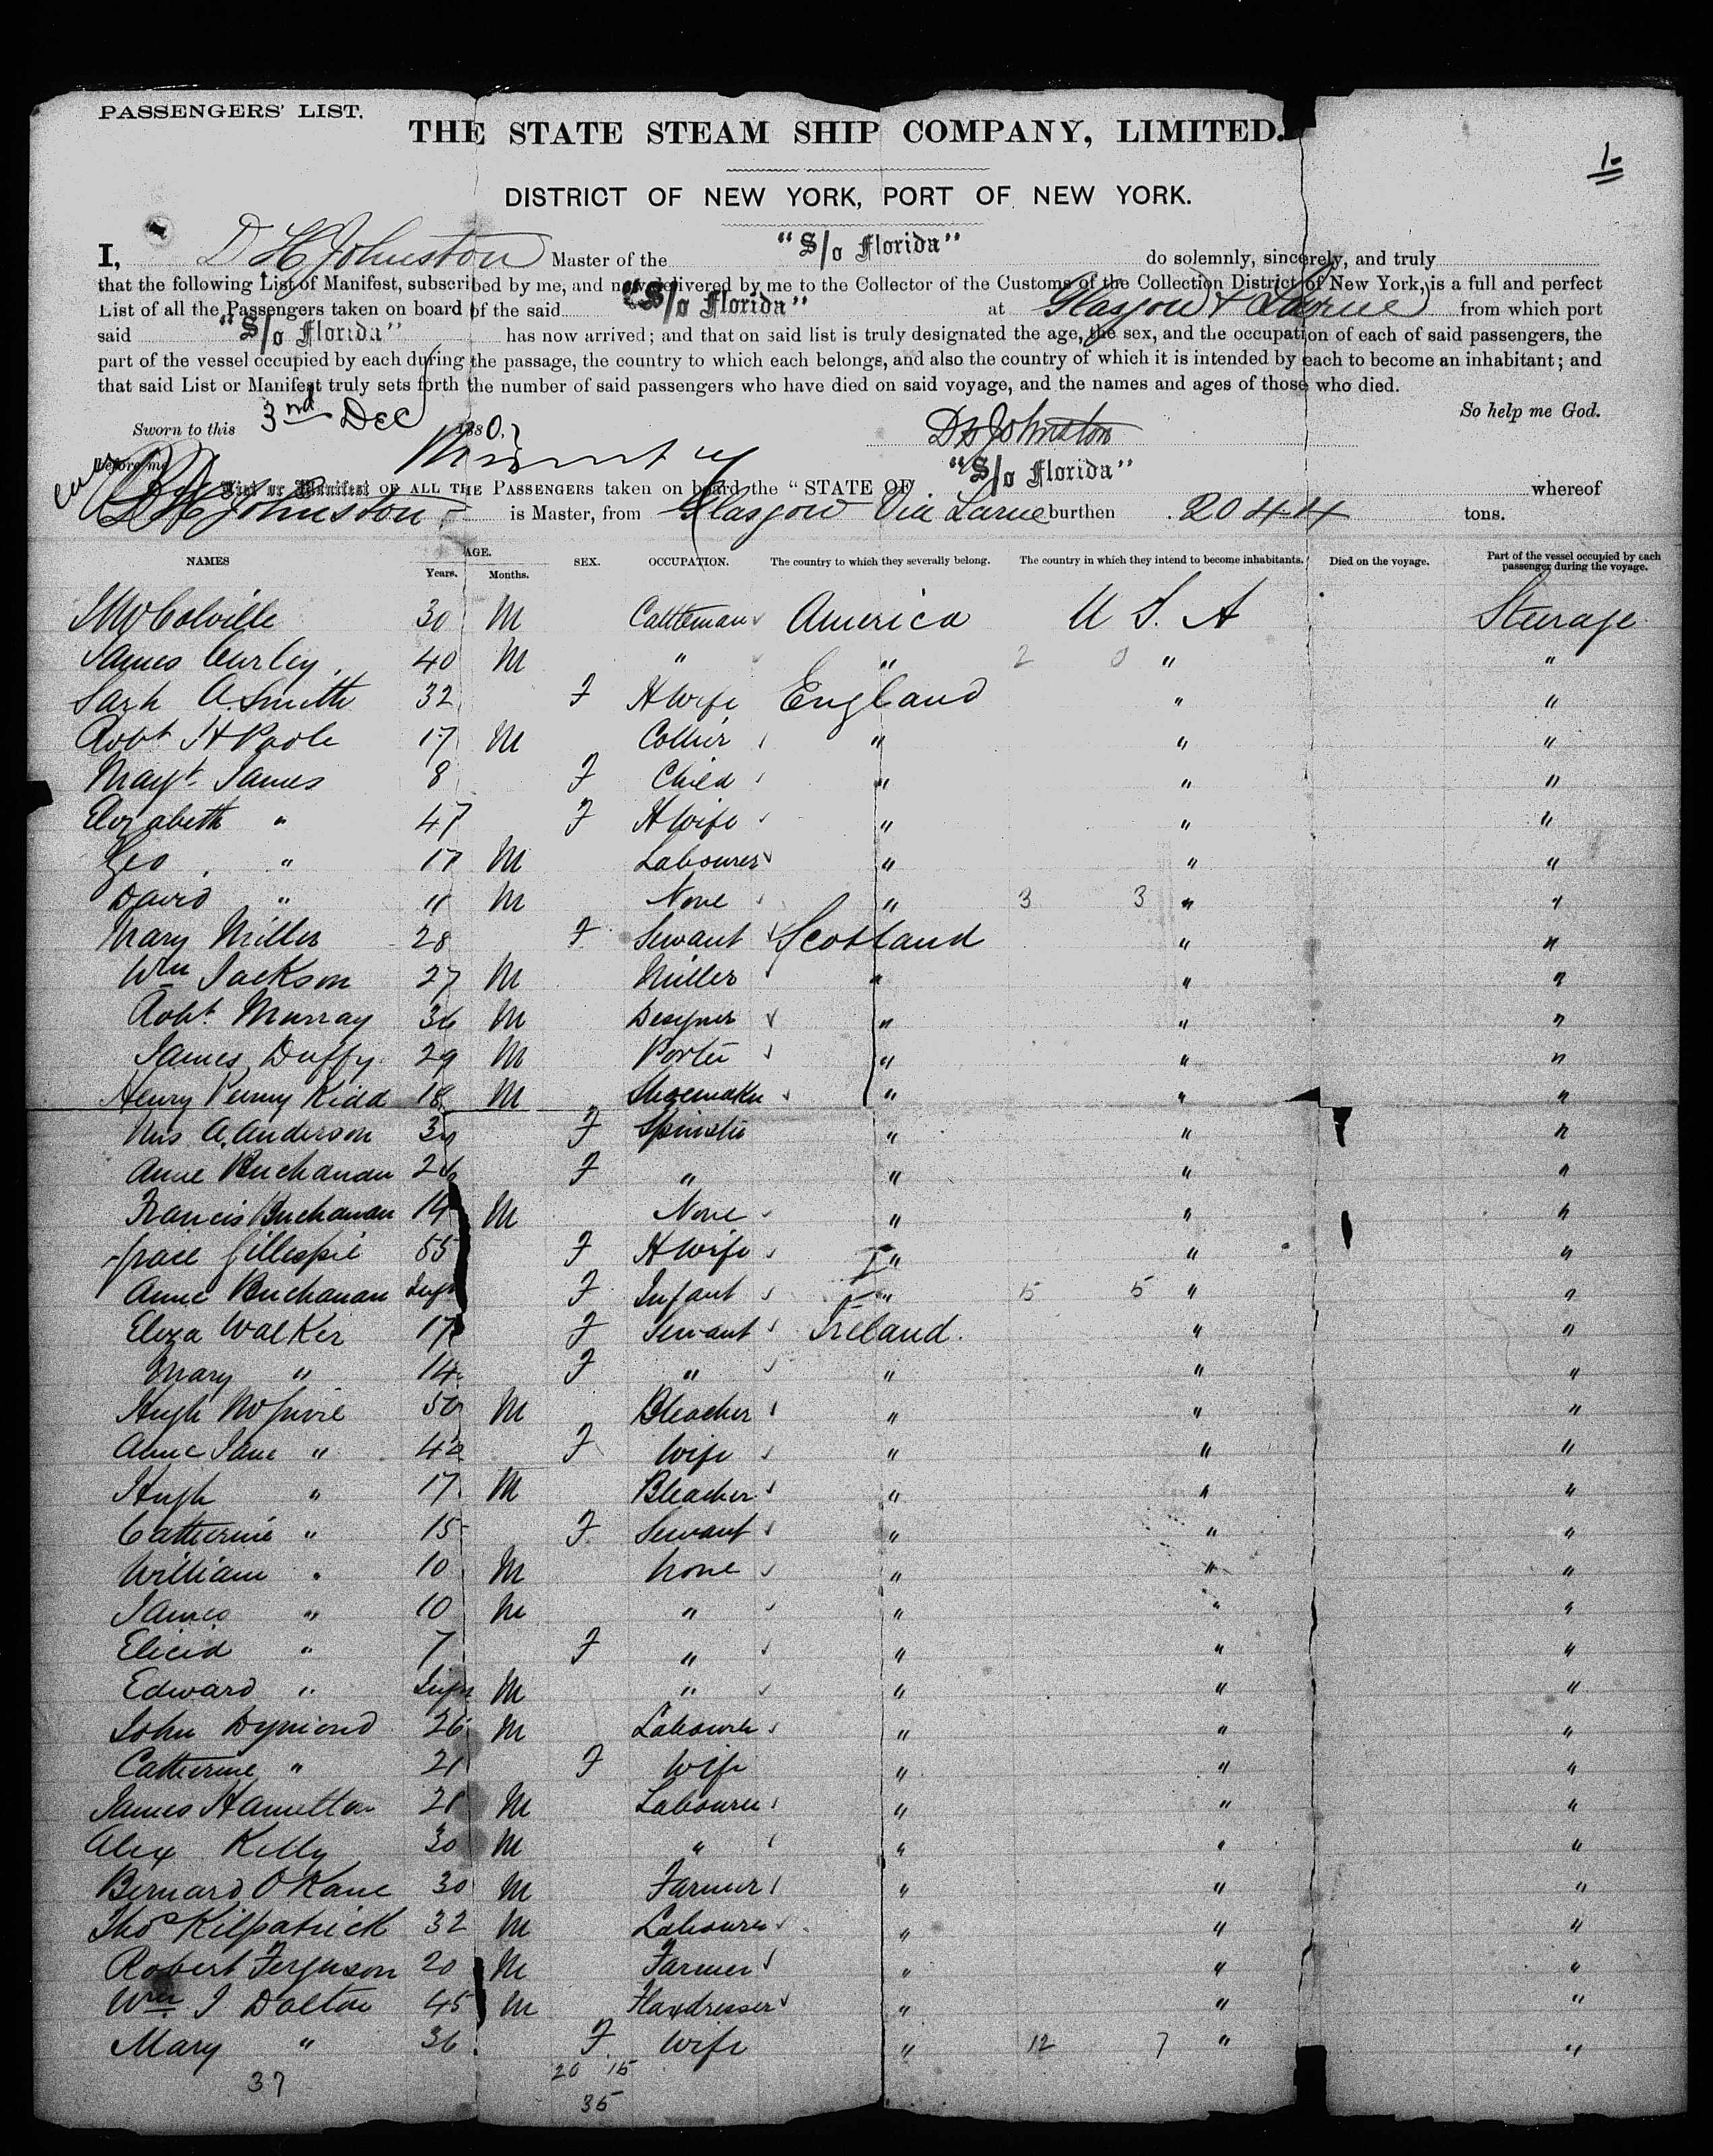 PASSENGERS' LIST.
THE STATE STEAM SHIP COMPANY, LIMITED.
1
DISTRICT OF NEW YORK, PORT OF NEW YORK.
I, D H Johnston Master of the "S/o Florida" do solemnly, sincerely, and truly
that the following List of Manifest, subscribed by me, and now delivered by me to the Collector of the Customs of the Collection District of New York, is a full and perfect
List of all the Passengers taken on board of the said "S/o Florida" at Glasgow & Larne from which port
said "S/o Florida" has now arrived; and that on said list is truly designated the age, the sex, and the occupation of each of said passengers, the
part of the vessel occupied by each during the passage, the country to which each belongs, and also the country of which it is intended by each to become an inhabitant; and
that said List or Manifest truly sets forth the number of said passengers who have died on said voyage, and the names and ages of those who died.
So help me God.
Sworn to this 3nd Dec 1880. D H Johnston
Before me
List or Manifest OF ALL THE PASSENGERS taken on board the "STATE OF "S/o Florida" whereof
D H Johnston is Master, from Glasgow Via Larne burthen 2044 tons.
NAMES AGE. Years. Months. SEX. OCCUPATION. The country to which they severally belong. The country in which they intend to become inhabitants. Died on the voyage. Part of the vessel occupied by each passenger during the voyage.
Colville 30 M Cattleman America U S. A Steerage
James Curley 40 M " " 2 0 " "
Sarh A. Smith 32 F H Wife England " "
Robt H Poole 17 M Collier " " "
Magt James 8 F Child " " "
Elizabeth " 47 F H Wife " " "
Geo " 17 M Labourer " " "
David " 11 M None " 3 3 " "
Mary Miller 28 F Servant Scotland " "
Wm Jackson 27 M Miller " " "
Robt. Murray 36 M Designer " " "
James Duffy 29 M Porter " " "
Henry Penny Kidd 18 M Shoemaker " " "
Mrs A. Anderson F Spinster " " "
Anne Buchanan 26 F " " " "
Francis Buchanan 14 M None " " "
Grace Gillespie 55 F H Wife " " "
Anne Buchanan Inft F Infant " 5 5 " "
Eliza Walker 17 F Servant Ireland. " "
Mary " 14 F " " " "
Hugh McGuire 50 M Bleacher " " "
Anne Jane " 42 F Wife " " "
Hugh " 17 M Bleacher " " "
Catherine " 15 F Servant " " "
William " 10 M None " " "
James " 10 M " " " "
" 7 F " " " "
Edward " Infn M " " " "
John Dymond 26 M Labourer " " "
Catherine " 21 F Wife " " "
James Hamilton 21 M Labourer " " "
Alex Kelly 30 M " " " "
Bernard O Kane 30 M Farmer " " "
Thos Kilpatrick 32 M Labourer " " "
Robert Ferguson 20 M Farmer " " "
Wm J Dalton 45 M Flaxdresser " " "
Mary " 36 F Wife " 12 7 " "
37 20 15
35